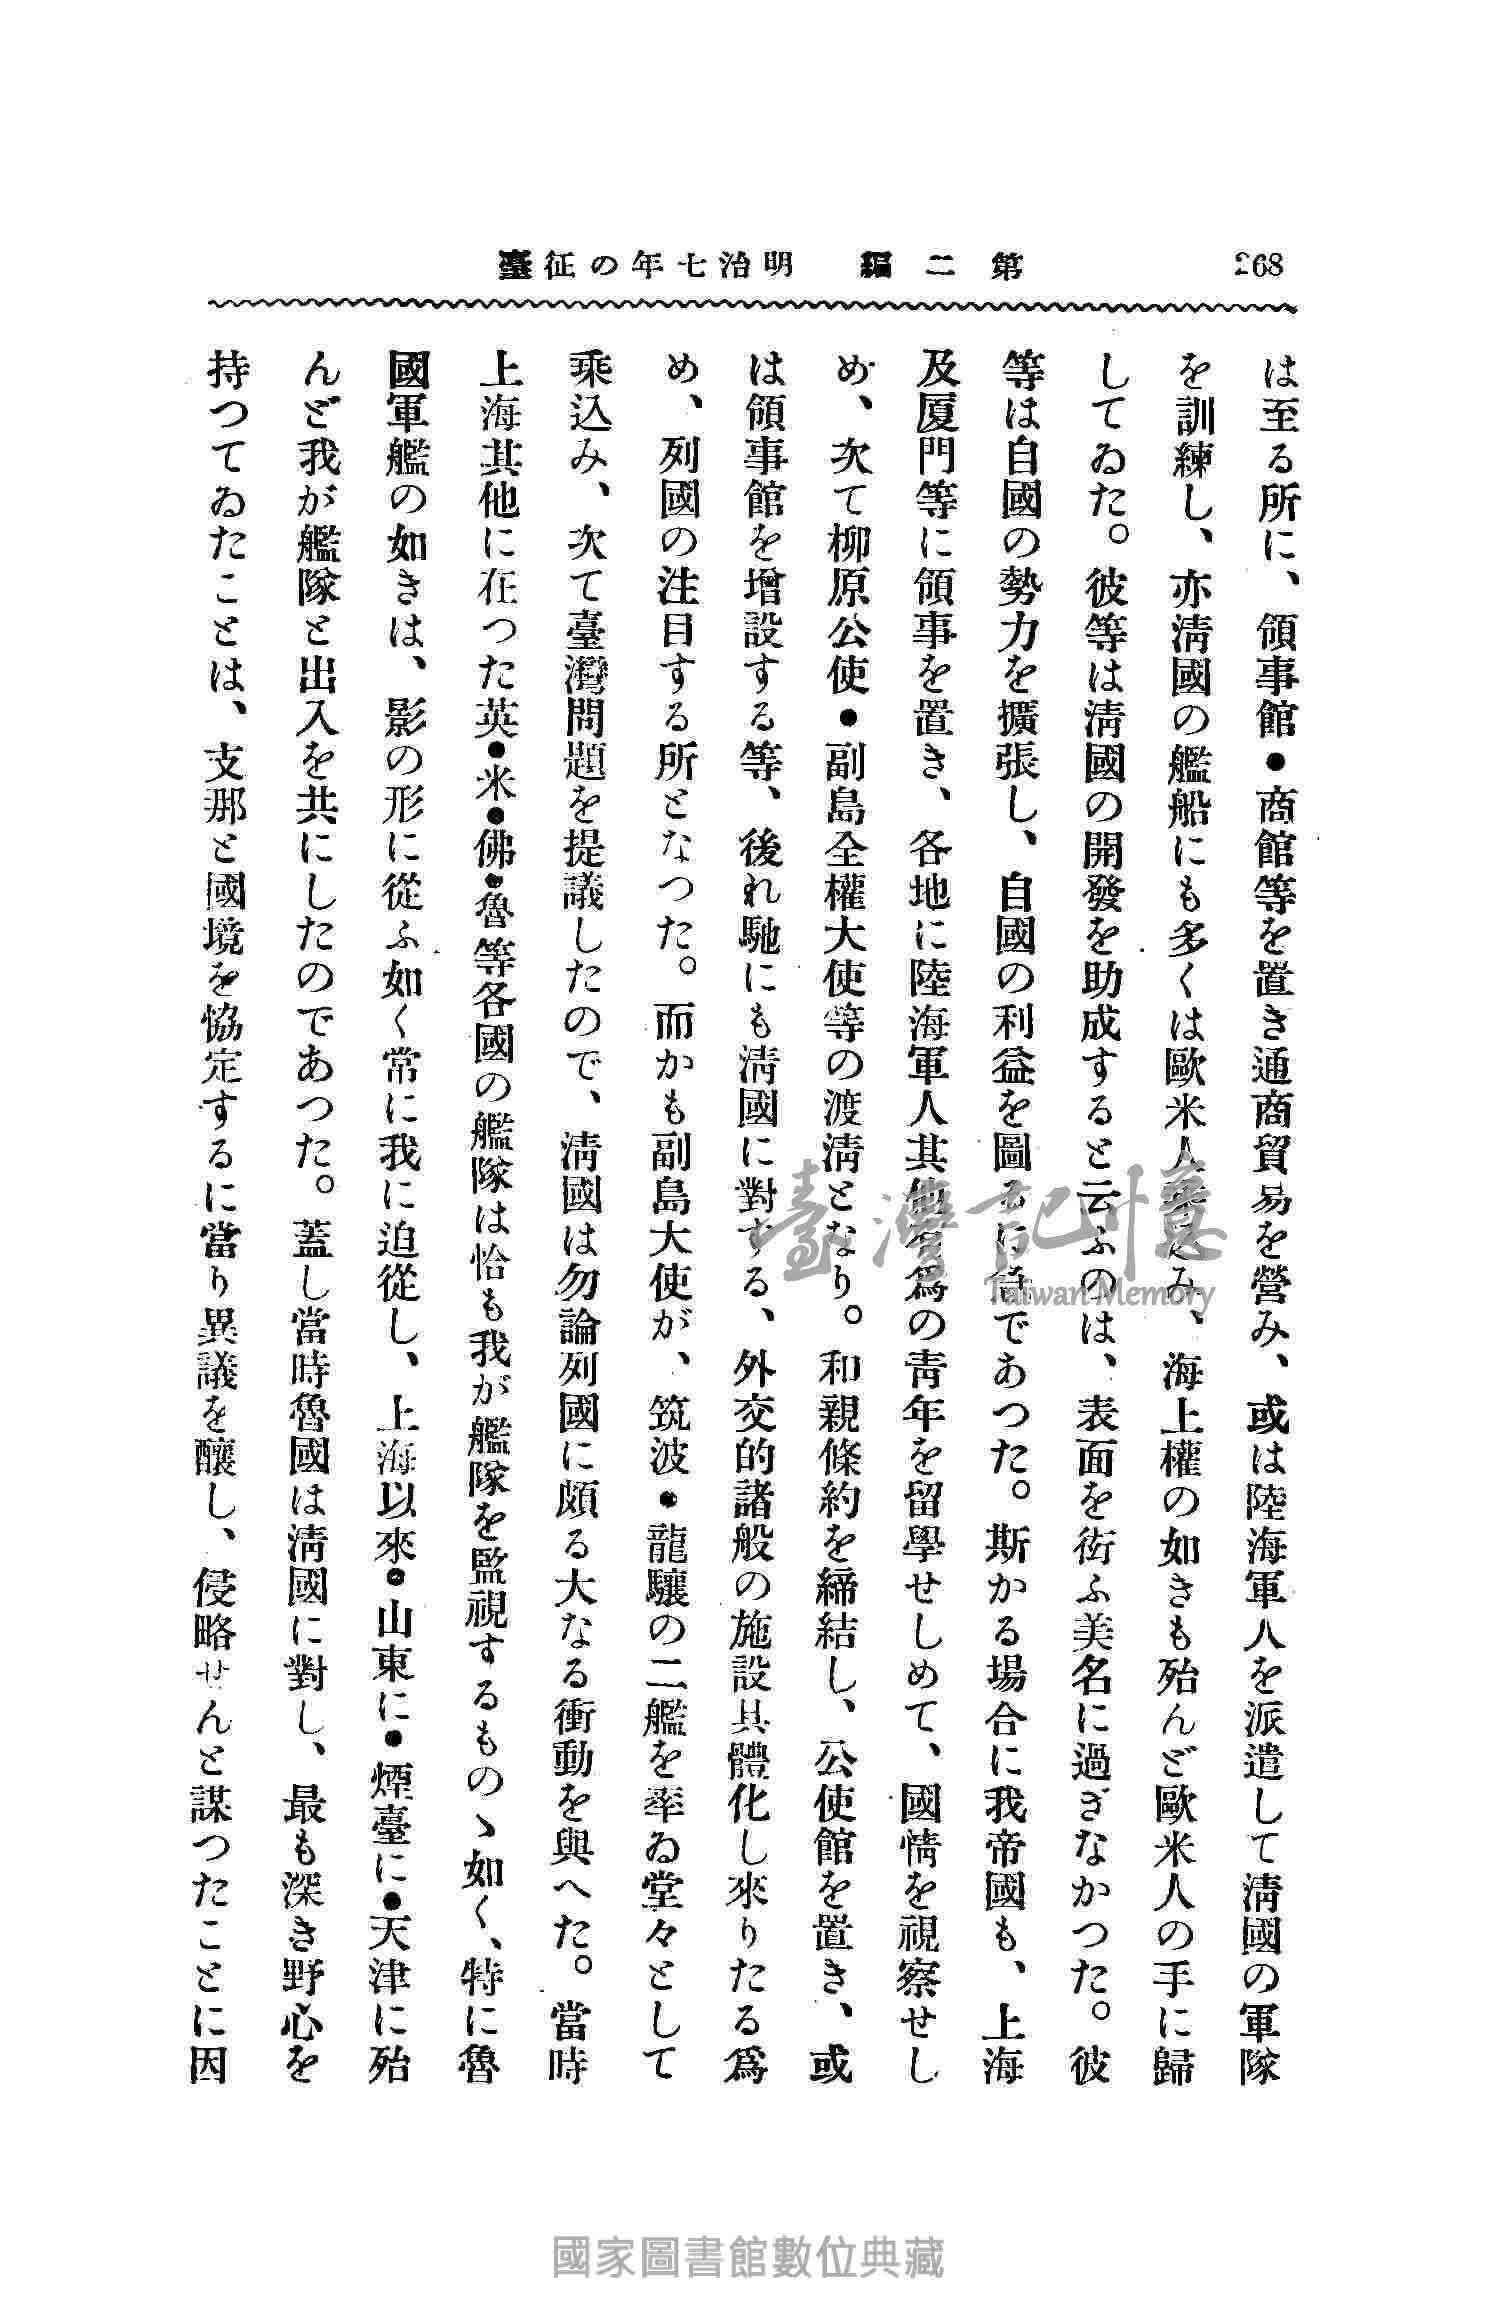 268
第二編　明治七年の征臺
は至る所に、領事館・商館等を置き通商貿易を營み、或は陸海軍人を派遣して淸國の軍隊
を訓練し、亦淸國の艦船にも多くは歐米人乘込み、海上權の如きも殆んど歐米人の手に歸
してゐた。彼等は淸國の開發を助成すると云ふのは、表面を衒ふ美名に過ぎなかつた。彼
等は自國の勢力を擴張し、自國の利益を圖るに過であつた。斯かる場合に我帝國も、上海
及厦門等に領事を置き、各地に陸海軍人其他有爲の靑年を留學せしめて、國情を視察せし
め、次て柳原公使・副島全權大使等の渡淸となり。和親條約を締結し、公使館を置き、或
は領事館を增設する等、後れ馳にも淸國に對する、外交的諸般の施設具體化し來りたる爲
め、列國の注目する所となつた。而かも副島大使が、筑波・龍驤の二艦を率ゐ堂々として
乘込み、次て臺灣問題を提議したので、淸國は勿論列國に頗る大なる衝動を與へた。當時
上海其他に在つた英・米・佛・魯等各國の艦隊は恰も我が艦隊を監視するものゝ如く、特に魯
國軍艦の如きは、影の形に從ふ如く常に我に迫從し、上海以來・山東に・煙臺に・天津に殆
んど我が艦隊と出入を共にしたのであつた。蓋し當時魯國は淸國に對し、最も深き野心を
持つてゐたことは、支那と國境を協定するに當り異議を釀し、侵略せんと謀つたことに因
臺灣記憶
Taiwan Memory
國家圖書館數位典藏